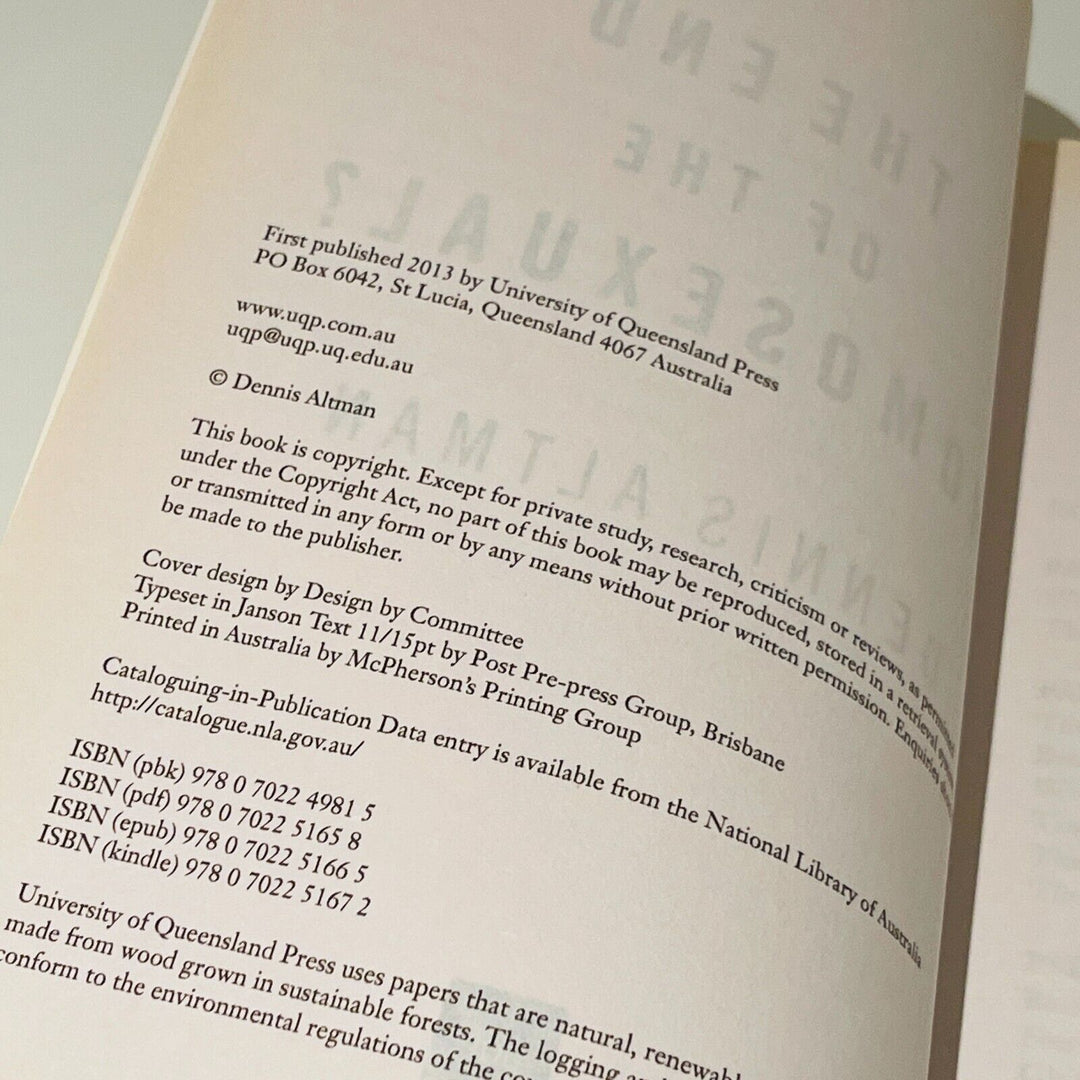 THE END
OF THE
HOMOSEXUAL?
DENNIS ALTMAN
First published 2013 by University of Queensland Press
PO Box 6042, St Lucia, Queensland 4067 Australia
www.uqp.com.au
uqp@uqp.uq.edu.au
© Dennis Altman
This book is copyright. Except for private study, research, criticism or reviews, as permitted
under the Copyright Act, no part of this book may be reproduced, stored in a retrieval system,
or transmitted in any form or by any means without prior written permission. Enquiries should
be made to the publisher.
Cover design by Design by Committee
Typeset in Janson Text 11/15pt by Post Pre-press Group, Brisbane
Printed in Australia by McPherson's Printing Group
Cataloguing-in-Publication Data entry is available from the National Library of Australia
http://catalogue.nla.gov.au/
ISBN (pbk) 978 0 7022 4981 5
ISBN (pdf) 978 0 7022 5165 8
ISBN (epub) 978 0 7022 5166 5
ISBN (kindle) 978 0 7022 5167 2
University of Queensland Press uses papers that are natural, renewabl
made from wood grown in sustainable forests. The logging
conform to the environmental regulations of the